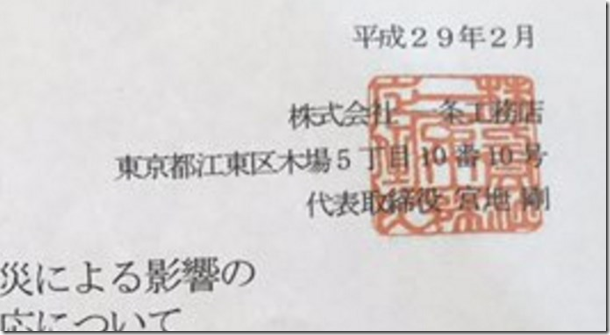 平成29年2月
株式会社 一条工務店
東京都江東区木場5丁目10番10号
代表取締役 宮地 剛
災による影響の
応について